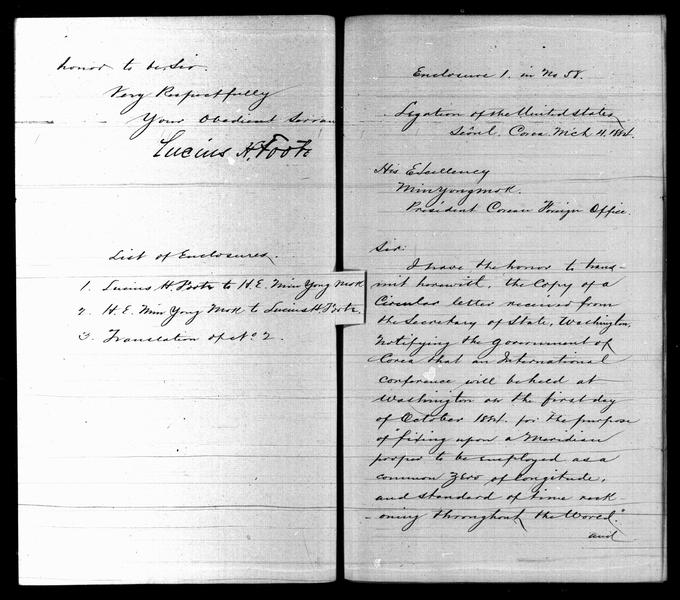 honor to be Sir.
Very Respectfully
Your Obedient Servan
Lucius H. Foote
List of Enclosures.
1. Lucius H. Foote to H.E. Min Yong Mok
2. H.E. Min Yong Mok to Lucius H. Foote.
3. Translation of No 2.
Enclosure 1. in No 58.
Legation of the United States
Seoul, Corea. Mch 4, 1884.
His Excellency
Min Yong Mok.
President Corean Foreign Office.
Sir:
I have the honor to trans-
mit herewith, the Copy of a
Circular letter received from
the Secretary of State, Washington,
notifying the government of
Corea that an International
conference will be held at
Washington on the first day
of October 1884. for the purpose
of "fixing upon a Meridian
proper to be employed as a
common zero of longitude,
and standard of time reck-
oning throughout the World."
and